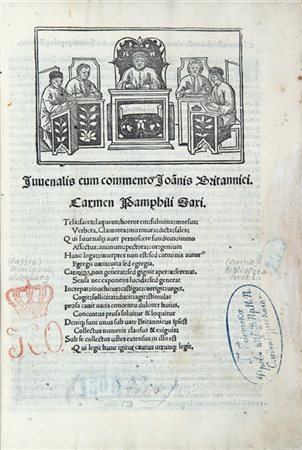 Iuuenalis
Iuuenalis cum commento Joãnis Britannici.
Carmen Pamphili Saxi.
Tela:faces:laqueos:horrorem:fulmina:morsus:
Verbera,Clamores:murmura:dicta:sales:
Qui Iuuenalis auet pernoscere funditus:immo
Affectus:animum:pectora:cor:genium
Hunc legat:interpres non est:sed carminis autor
Egregii uatis:uita sed egregia,
Carmina non generat:sed gignit aperta:serenat.
Sensa nec exponens lucida:sed generat
Increpat:inuehitur:castigat:corrigit:urget,
Cogit:sollicitat:ducit:agit:stimulat
prosa canit uatis concentu dulciter huius,
Concentus prosa soluitur & loquitur
Deniq; sunt unus sub uate Britannicus ipse est
Collectus numeris clausus & exiguis:
Sub se collectus uates extensus in illo est
Qui legit hunc igitur cautus utrunq; legit.